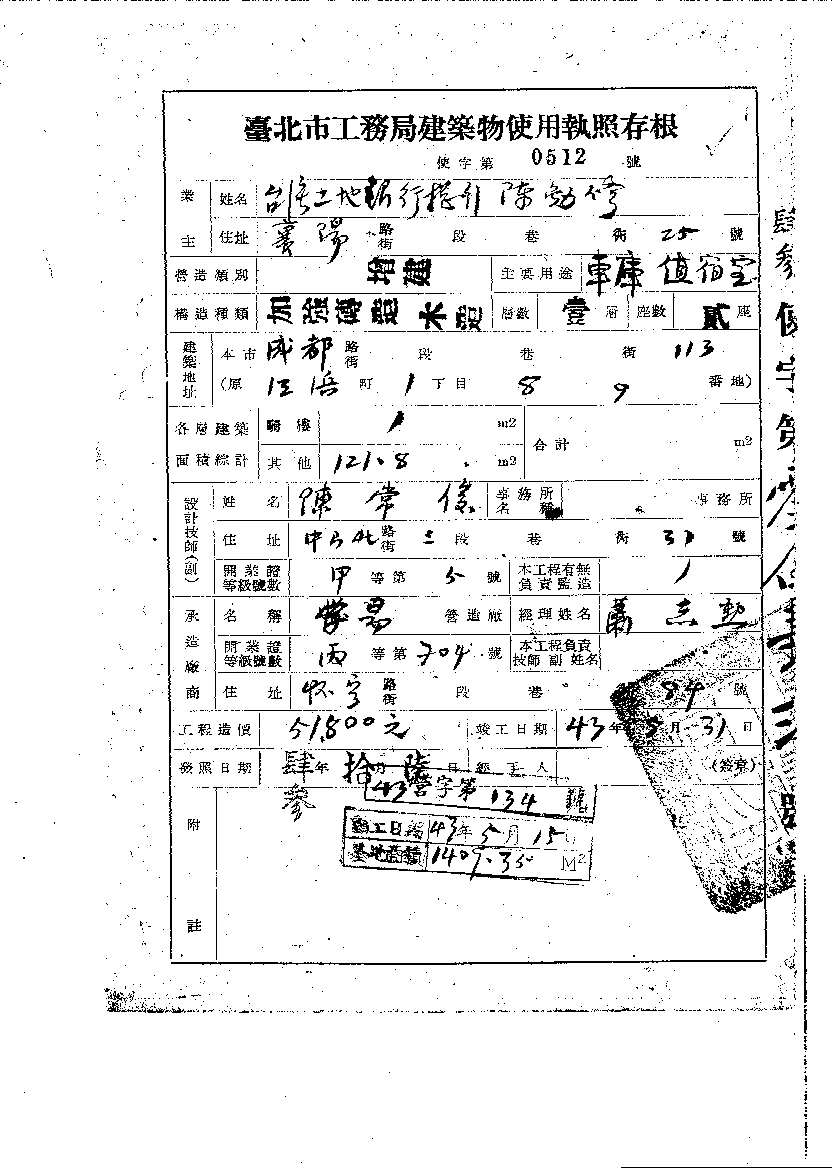 臺北市工務局建築物使用執照存根
使字第 0512 號
業主 姓名 台灣土地銀行 陳勉修
住址 襄陽 路街 段 巷 街 25 號
營造類別 增建 主要用途 車庫 值宿室
構造種類 加強磚造 木造 層數 壹 層 座數 貳 座
建築地址 本市 成都 路街 段 巷 街 113
(原 江浜 町 1 丁目 8 9 番地)
各層建築面積綜計 騎樓 / m2 合計 m2
其他 121.8 m2
設計技師(副) 姓名 陳常俊 事務所名稱 事務所
住址 中山北 路街 三 段 巷 街 31 號
開業證等級號數 甲 等第 5 號 本工程有無負責監造 /
承造廠商 名稱 營造廠 經理姓名 蕭志勲
開業證等級號數 丙 等第 704 號 本工程負責技師副姓名
住址 怀宁 路街 段 巷 84 號
工程造價 51,800元 竣工日期 43年 5月 31日
發照日期 肆參年 拾月 陸日 經手人 (簽章)
43營字第 134 號
動工日期 43年5月15日
基地面積 1409.35 M2
附註
肆參使字第零伍壹貳號